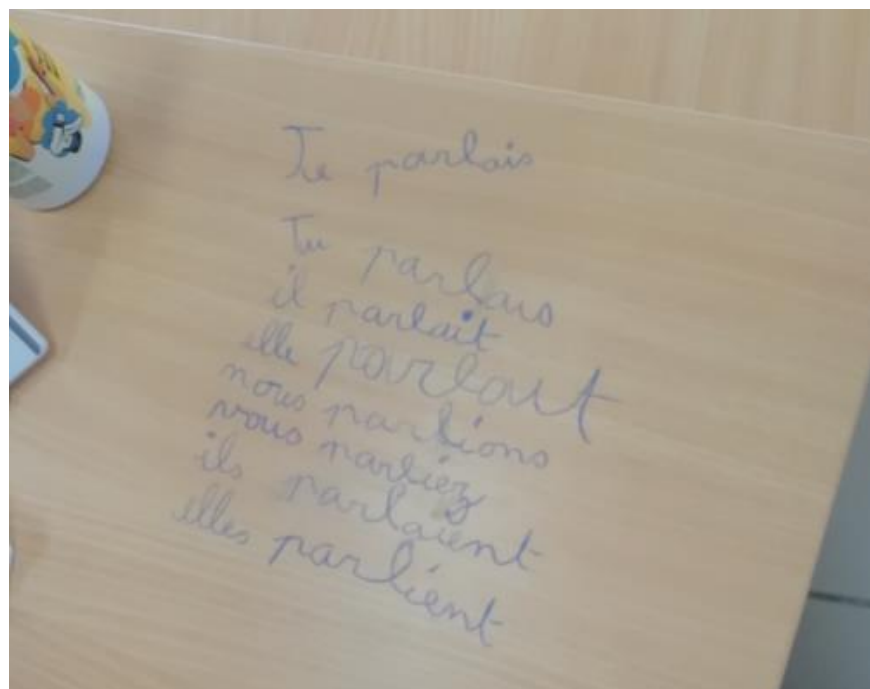 Je parlais
Tu parlais
il parlait
elle parlait
nous parlions
vous parliez
ils parlaient
elles parlient